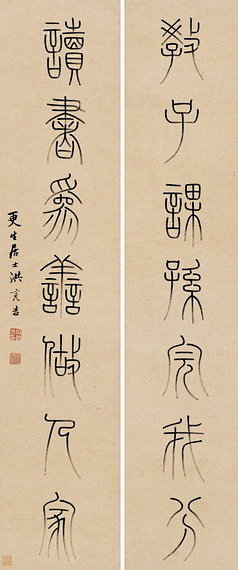 教子課孫完我分
讀書為善做人家
更生居士洪亮吉